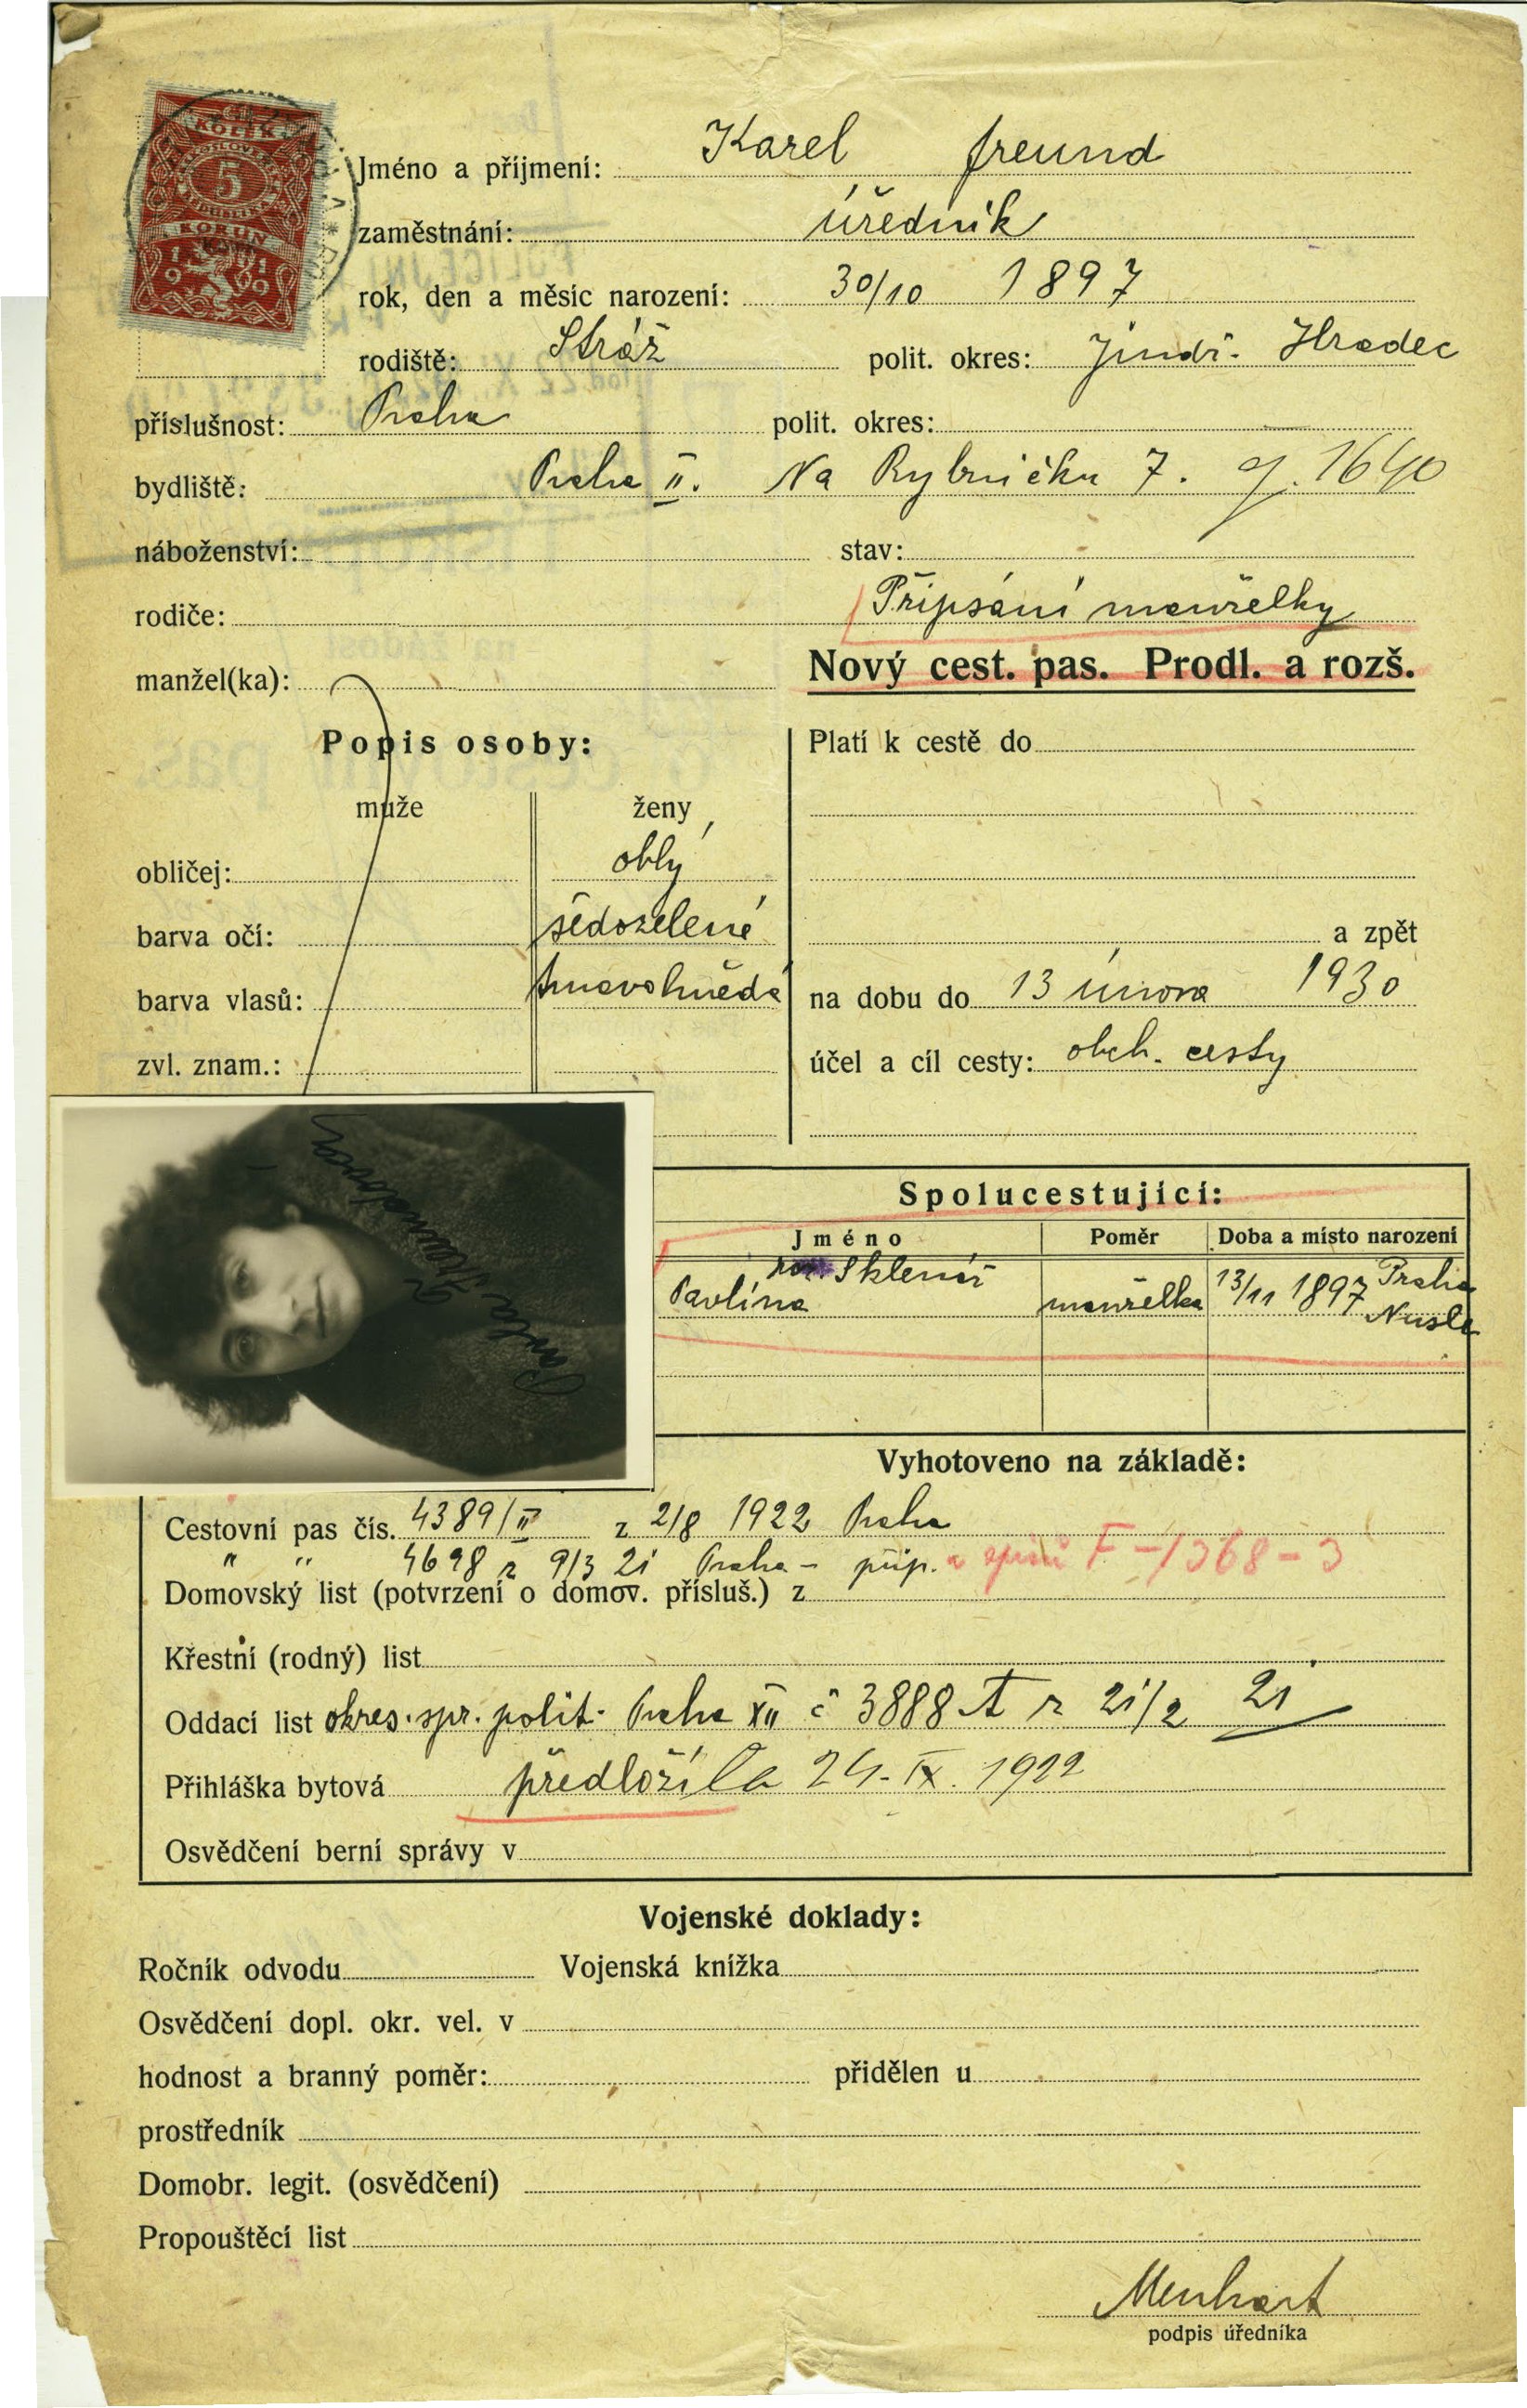 KOLEK
5
KORUN
1919
Jméno a příjmení: Karel Freund
zaměstnání: úředník
rok, den a měsíc narození: 30/10 1897
rodiště: Stráž polit. okres: Jindř. Hradec
příslušnost: Praha polit. okres: —
bydliště: Praha II. Na Rybníčku 7. 1640
náboženství: stav:
rodiče: Připsání manželky
manžel(ka): Nový cest. pas. Prodl. a rozš.
Popis osoby:
muže ženy
obličej: oblý
barva očí: šedozelené
barva vlasů: tmavohnědá
zvl. znam.:
Platí k cestě do
a zpět
na dobu do 13 února 1930
účel a cíl cesty: obch. cesty
Pavla Freundová
Spolucestující:
Jméno Poměr Doba a místo narození
roz. Sklenář
Pavlína manželka 13/11 1897 Praha
Nusle
Vyhotoveno na základě:
Cestovní pas čís. 4389/II z 2/8 1922 Praha
" " 4698 z 9/3 21 Praha - příp. z spisů F-1368-3
Domovský list (potvrzení o domov. přísluš.) z
Křestní (rodný) list
Oddací list okres. spr. polit. Praha XII č 3888 A z 21/2 21
Přihláška bytová předložila 24. IX. 1922
Osvědčení berní správy v
Vojenské doklady:
Ročník odvodu Vojenská knížka
Osvědčení dopl. okr. vel. v
hodnost a branný poměr: přidělen u
prostředník
Domobr. legit. (osvědčení)
Propouštěcí list
Menhart
podpis úředníka